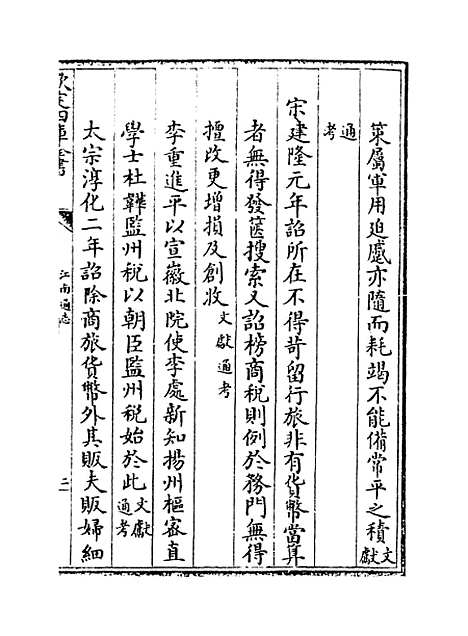 策屬軍用迫蹙亦隨而耗竭不能備常平之積文獻
通考
宋建隆元年詔所在不得苛留行旅非有貨幣當算
者無得發篋搜索又詔榜商稅則例於務門無得
擅改更增損及創收文獻通考
李重進平以宣徽北院使李處新知揚州樞密直
學士杜韡監州稅以朝臣監州稅始於此文獻通考
太宗淳化二年詔除商旅貨幣外其販夫販婦細
欽定四庫全書
江南通志
二